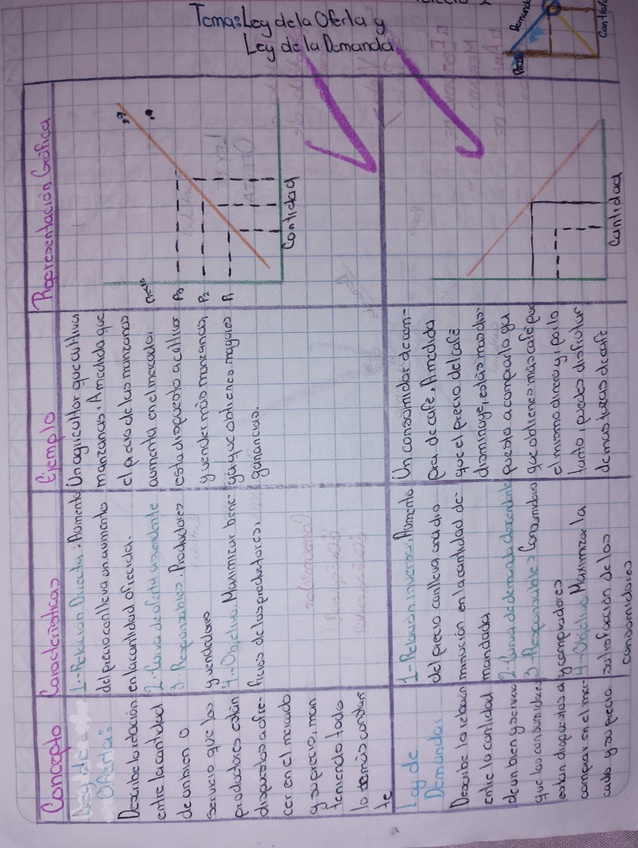 Tema: Ley de la Oferta y
Ley de la Demanda
Concepto
Características
Ejemplo
Representación Gráfica
Ley de
Oferta:
Describe la relación
entre la cantidad
de un bien o
servicio que los
productores están
dispuestos a ofre-
cer en el mercado
y su precio, man
teniendo todo
lo demás constan
te
1-Relación Directa: Aumento
del precio conlleva un aumento
en la cantidad ofrecida.
2-Curva de oferta ascendente
3-Responsables: Productores
y vendedores
4-Objetivo: Maximizar bene-
ficios de los productores.
Un agricultor que cultiva
manzanas. A medida que
el precio de las manzanas
aumenta en el mercado,
está dispuesto a cultivar
y vender más manzanas,
ya que obtiene mayores
ganancias.
P3
P2
Cantidad
Ley de
Demanda:
Describe la relación
entre la cantidad
de un bien y servicio
que los consumidores
están dispuestos a
comprar en el mer
cado y su precio
1-Relación inversa: Aumento
del precio conlleva una dis
minución en la cantidad de-
mandada
2-Curva de demanda descendente
3-Responsables: Consumidores
y compradores
4-Objetivo: Maximizar la
satisfacción de los
consumidores
Un consumidor de com-
pra de café. A medida
que el precio del café
disminuye, estás más dis-
puesto a comprarlo ya
que obtienes más café por
el mismo dinero y, por lo
tanto, puedes disfrutar
de más tazas de café
Cantidad